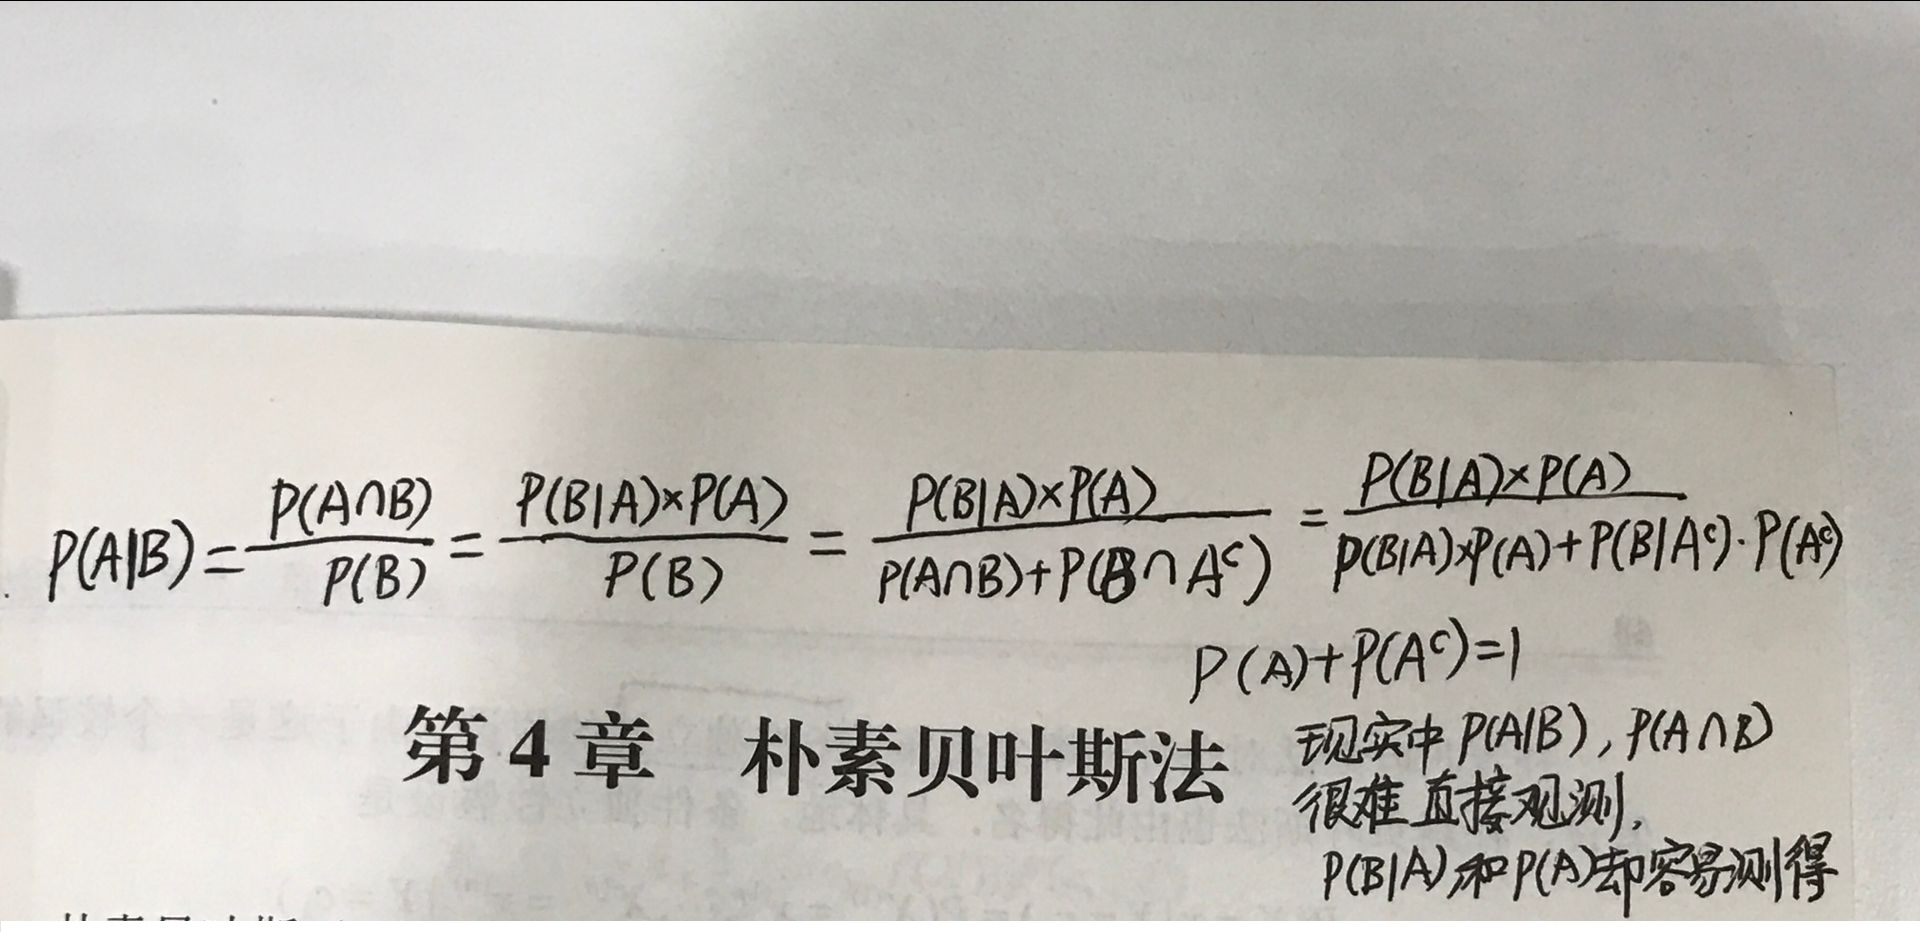 P(A|B) = P(A∩B)/P(B) = P(B|A)×P(A)/P(B) = P(B|A)×P(A)/(P(A∩B)+P(B∩Aᶜ)) = P(B|A)×P(A)/(P(B|A)×P(A)+P(B|Aᶜ)·P(Aᶜ))
P(A)+P(Aᶜ)=1
第4章 朴素贝叶斯法
现实中 P(A|B), P(A∩B)
很难直接观测.
P(B|A)和P(A)却容易测得